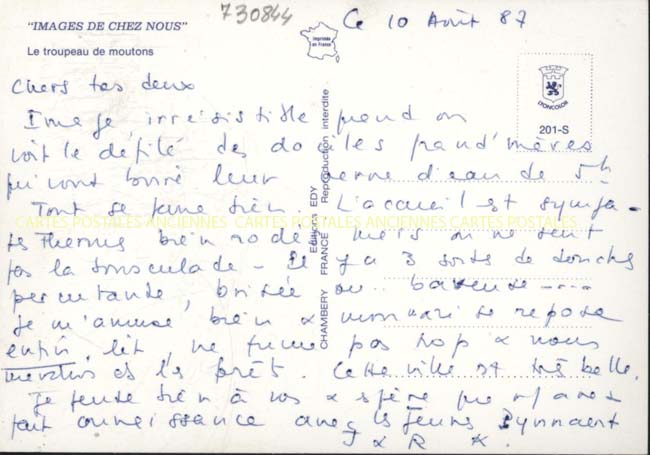 730844
Ce 10 Août 87
"IMAGES DE CHEZ NOUS"
Le troupeau de moutons
Imprimée
en France
LYONCOLOR
201-S
Editions EDY
CHAMBERY FRANCE Reproduction interdite
CARTES POSTALES ANCIENNES CARTES POSTALES ANCIENNES CARTES POSTALES
Chers tos deux
Image irrésistible quand on
voit le défilé des dociles grand'mères
qui vont boire leur verre d'eau de 5h
Tout se passe bien. L'accueil est sympa -
les Thermes bien rodés mais on ne sent
pas la bousculade - Il y a 3 sortes de douches
percutante, brisée ou baveuse ----
Je m'amuse bien & mon mari se repose
enfin, lit, ne fume pas trop & nous
marchons ds les forêt. Cette ville est très belle.
Je pense bien à vos & espère que vs avez
fait connaissance avec les jeunes
J & R